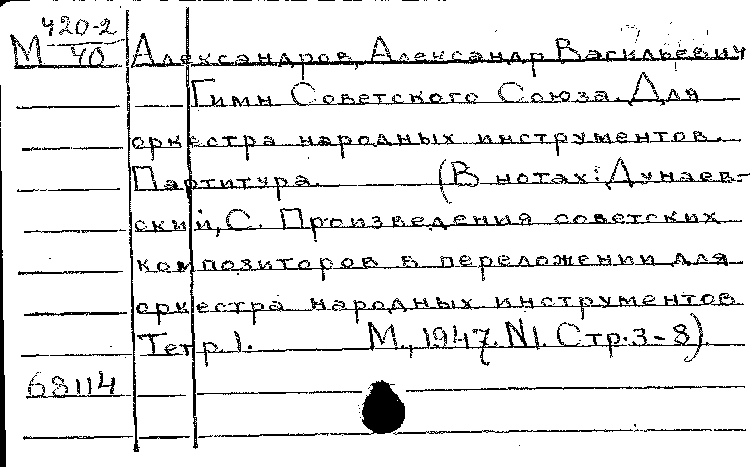 М 420-2/40 Александров, Александр Васильевич
Гимн Советского Союза. Для
оркестра народных инструментов.
Партитура. (В нотах: Дунаев-
ский, С. Произведения советских
композиторов в переложении для
оркестра народных инструментов
Тетр. 1. М., 1947. N1. Стр. 3-8).
68114